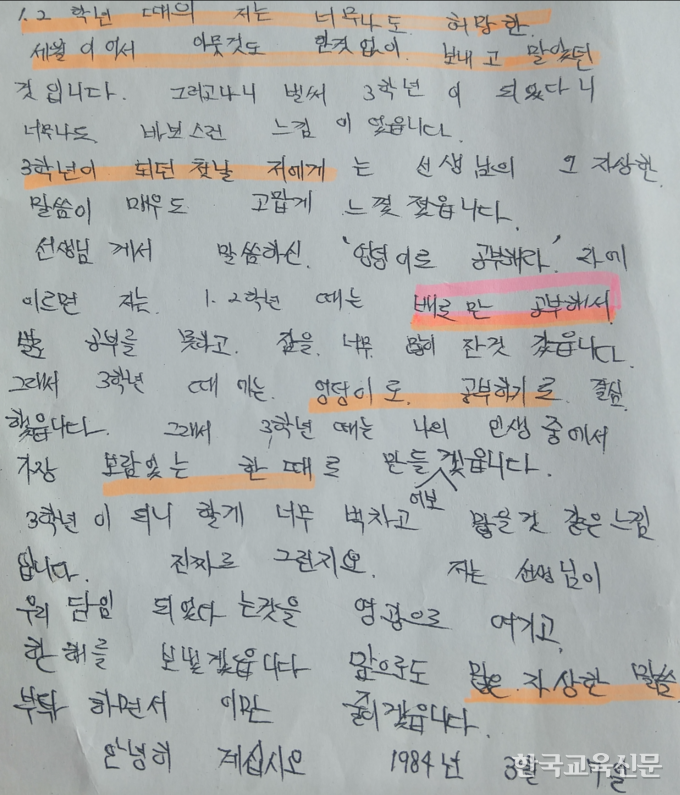 1.2 학년 때의 저는 너무나도. 허망한.
세월이어서 아뭇것도 한것없이. 보내고 말았던
것입니다. 그리고나니 벌써 3학년이 되었다니
너무나도. 바보스런 느낌이 있읍니다.
3학년이 되던 첫날 저에게는 선생님의 그 자상한.
말씀이 매우도 고맙게 느껴졌읍니다.
선생님께서 말씀하신. '엉덩이로 공부해라.' 라에
이르면 저는. 1.2학년 때는 배로만 공부해서.
공부를 못하고. 잠을. 너무 많이 잔것 같읍니다.
그래서 3학년 때에는. 엉덩이로. 공부하기로. 결심
했읍니다. 그래서 3학년 때는 나의 인생 중에서
가장 보람있는 한때로 만들어보겠읍니다.
3학년이 되니 할게 너무 벅차고 많을것 같은느낌
입니다. 진짜로 그런지요. 저는 선생님이
우리 담임 되었다는것을 영광으로 여기고.
한해를 보내겠읍니다 앞으로도 많은 자상한 말씀
부탁하면서 이만 줄이겠읍니다.
안녕히 계십시오 1984년 3월
한국교육신문